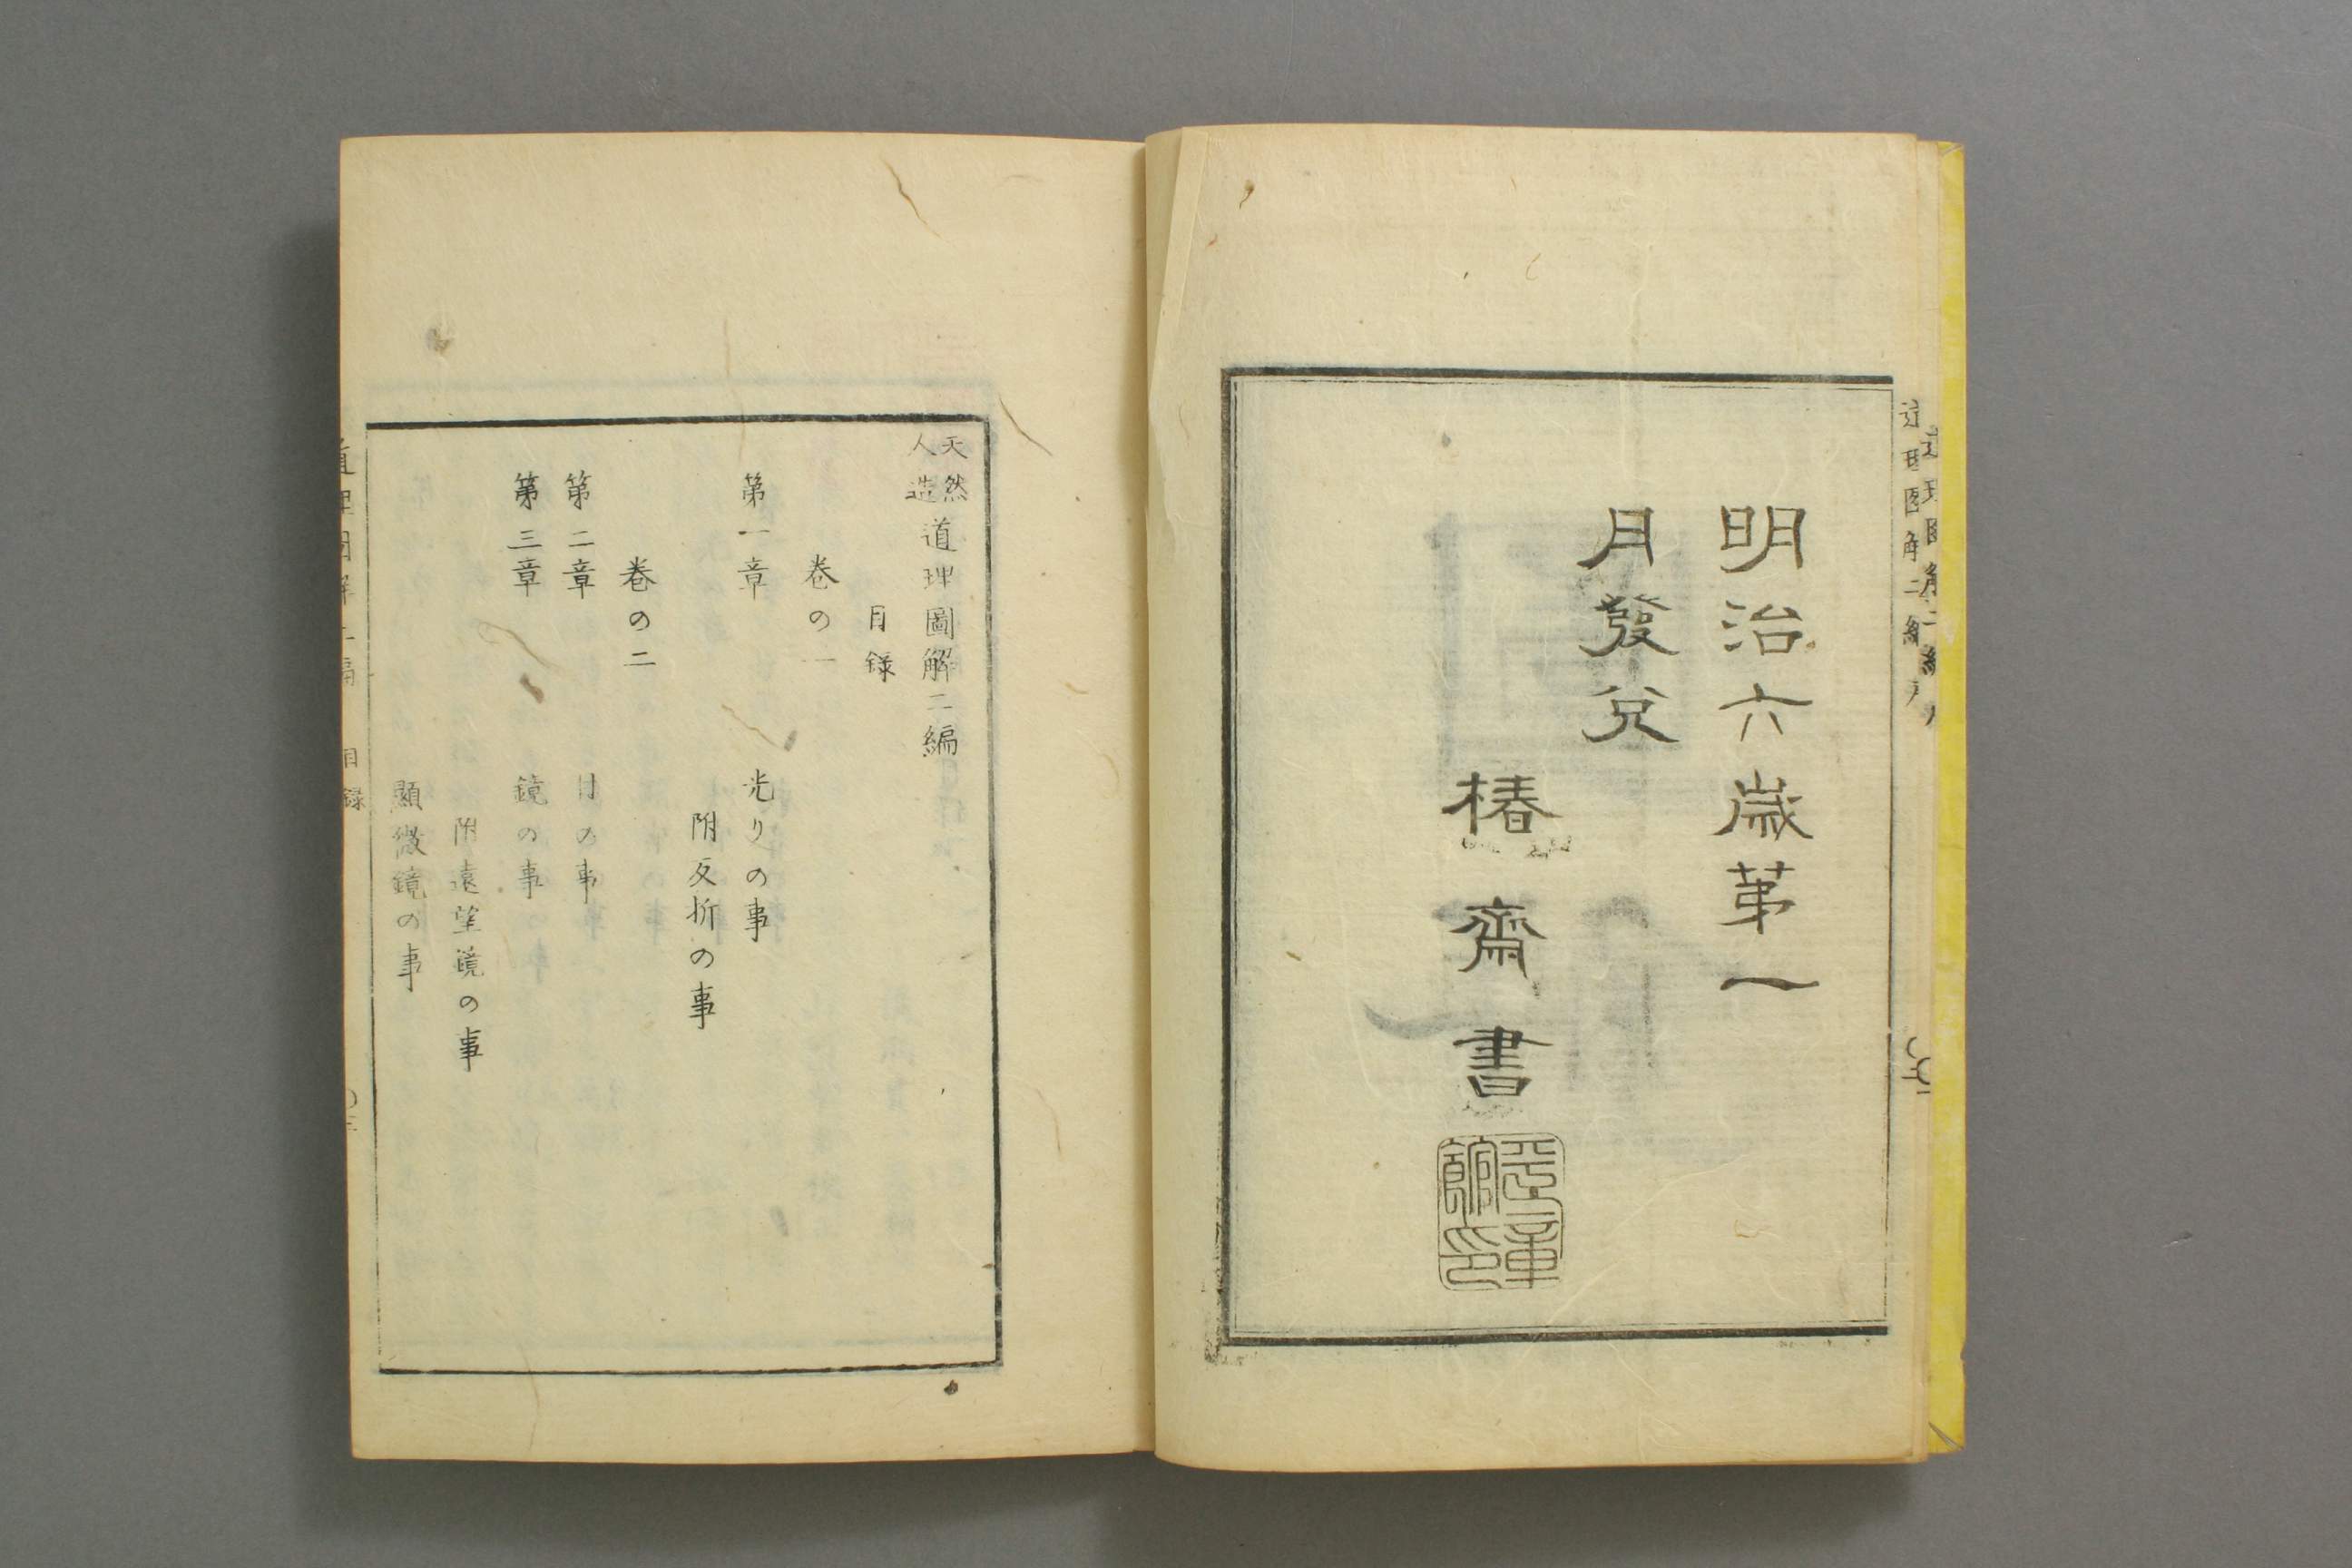 明治六歳苐一
月發兌
椿齋書
天然
人造
道理圖解二編
目録
巻の一
第一章 光りの事
附反折の事
巻の二
第二章 目の事
第三章 鏡の事
附遠望鏡の事
顯微鏡の事
道理図解二編 目録